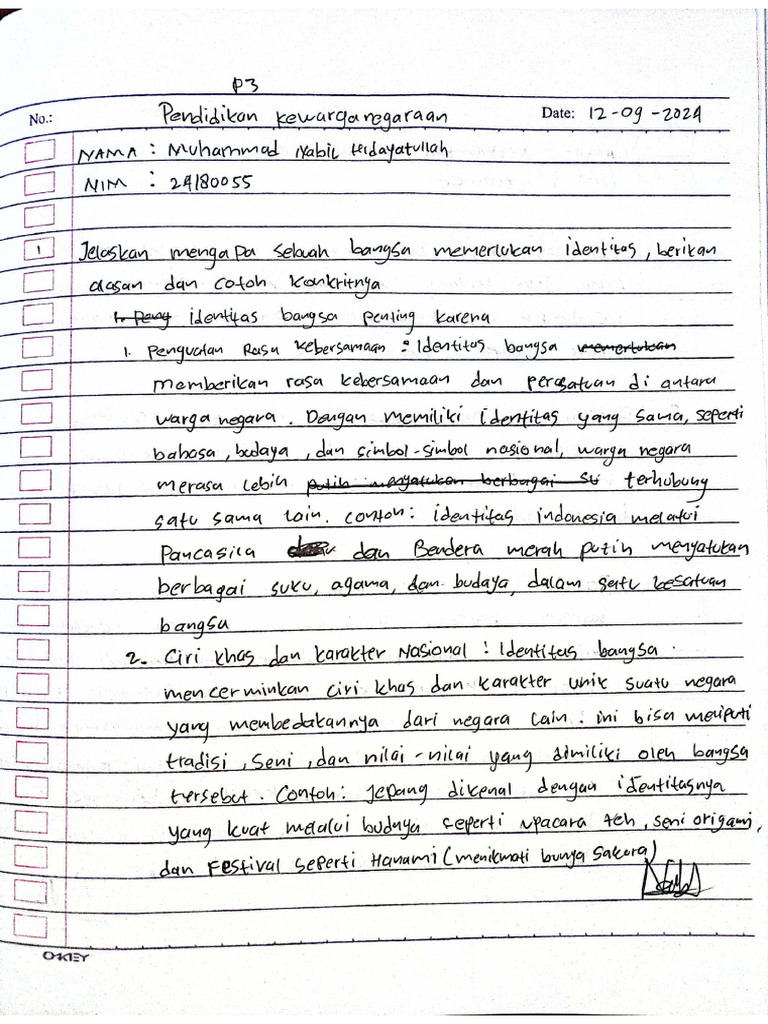 P3
No.: Pendidikan Kewarganegaraan Date: 12-09-2024
NAMA : Muhammad Nabil Hidayatullah
NIM : 24180055
1 Jelaskan mengapa sebuah bangsa memerlukan identitas, berikan
alasan dan cotoh konkritnya
1. Peng identitas bangsa penting karena
1. Penguatan Rasa Kebersamaan : Identitas bangsa memerlukan
memberikan rasa kebersamaan dan persatuan di antara
warga negara. Dengan memiliki identitas yang sama, seperti
bahasa, budaya, dan simbol-simbol nasional, warga negara
merasa lebih putih menyatukan berbagai su terhubung
satu sama lain. contoh: identitas indonesia melalui
Pancasila dan Bendera merah putih menyatukan
berbagai suku, agama, dan budaya, dalam satu kesatuan
bangsa
2. Ciri khas dan karakter Nasional : Identitas bangsa
mencerminkan ciri khas dan karakter unik suatu negara
yang membedakannya dari negara lain. ini bisa meliputi
tradisi, seni, dan nilai-nilai yang dimiliki oleh bangsa
tersebut. Contoh: Jepang dikenal dengan identitasnya
yang kuat melalui budaya seperti upacara teh, seni origami,
dan Festival seperti Hanami (menikmati bunga Sakura)
OKEY